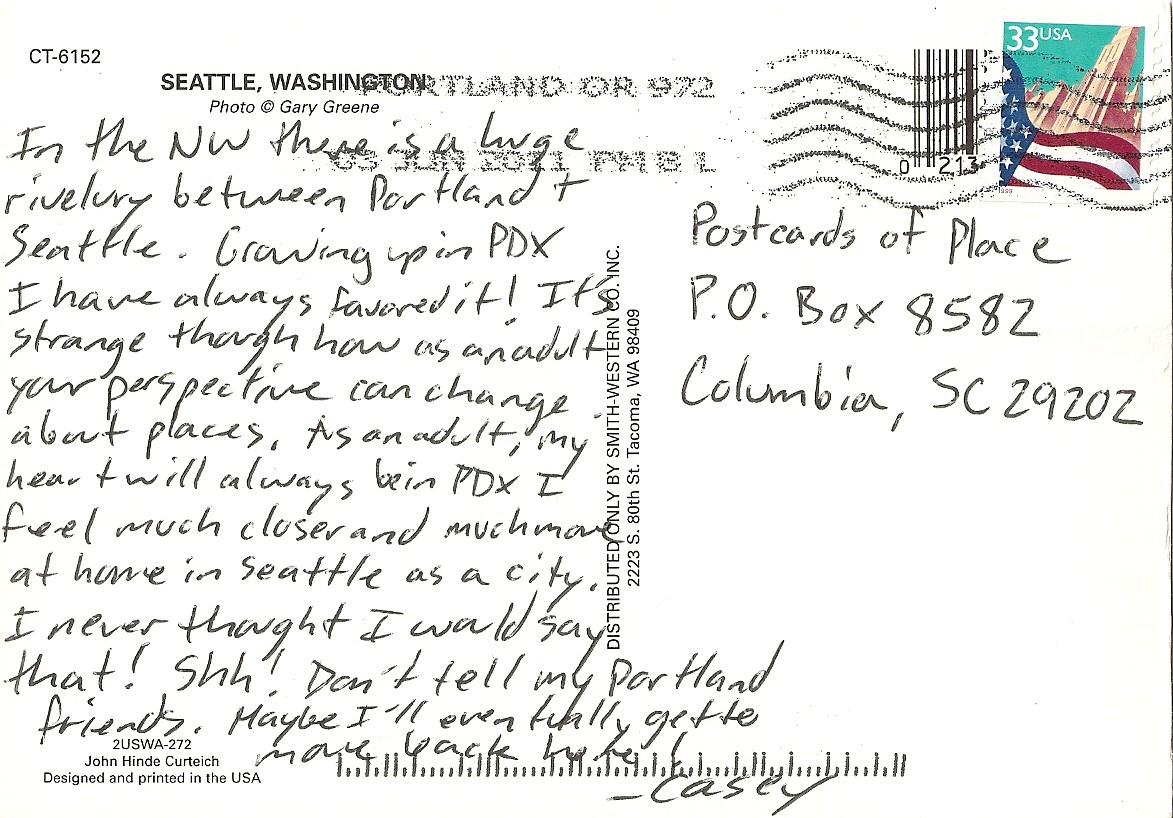 CT-6152
SEATTLE, WASHINGTON
Photo © Gary Greene
PORTLAND OR 972
PM 8 L
33 USA
1999
0 213
In the NW there is a huge
rivelury between Portland +
Seattle. Growing up in PDX
I have always favored it! It's
strange though how as an adult
your perspective can change
about places. As an adult, my
heart will always be in PDX I
feel much closer and much more
at home in Seattle as a city.
I never thought I would say
that! Shh! Don't tell my Portland
friends. Maybe I'll eventually get to
move back here!
-Casey
DISTRIBUTED ONLY BY SMITH-WESTERN CO. INC.
2223 S. 80th St. Tacoma, WA 98409
Postcards of Place
P.O. Box 8582
Columbia, SC 29202
2USWA-272
John Hinde Curteich
Designed and printed in the USA